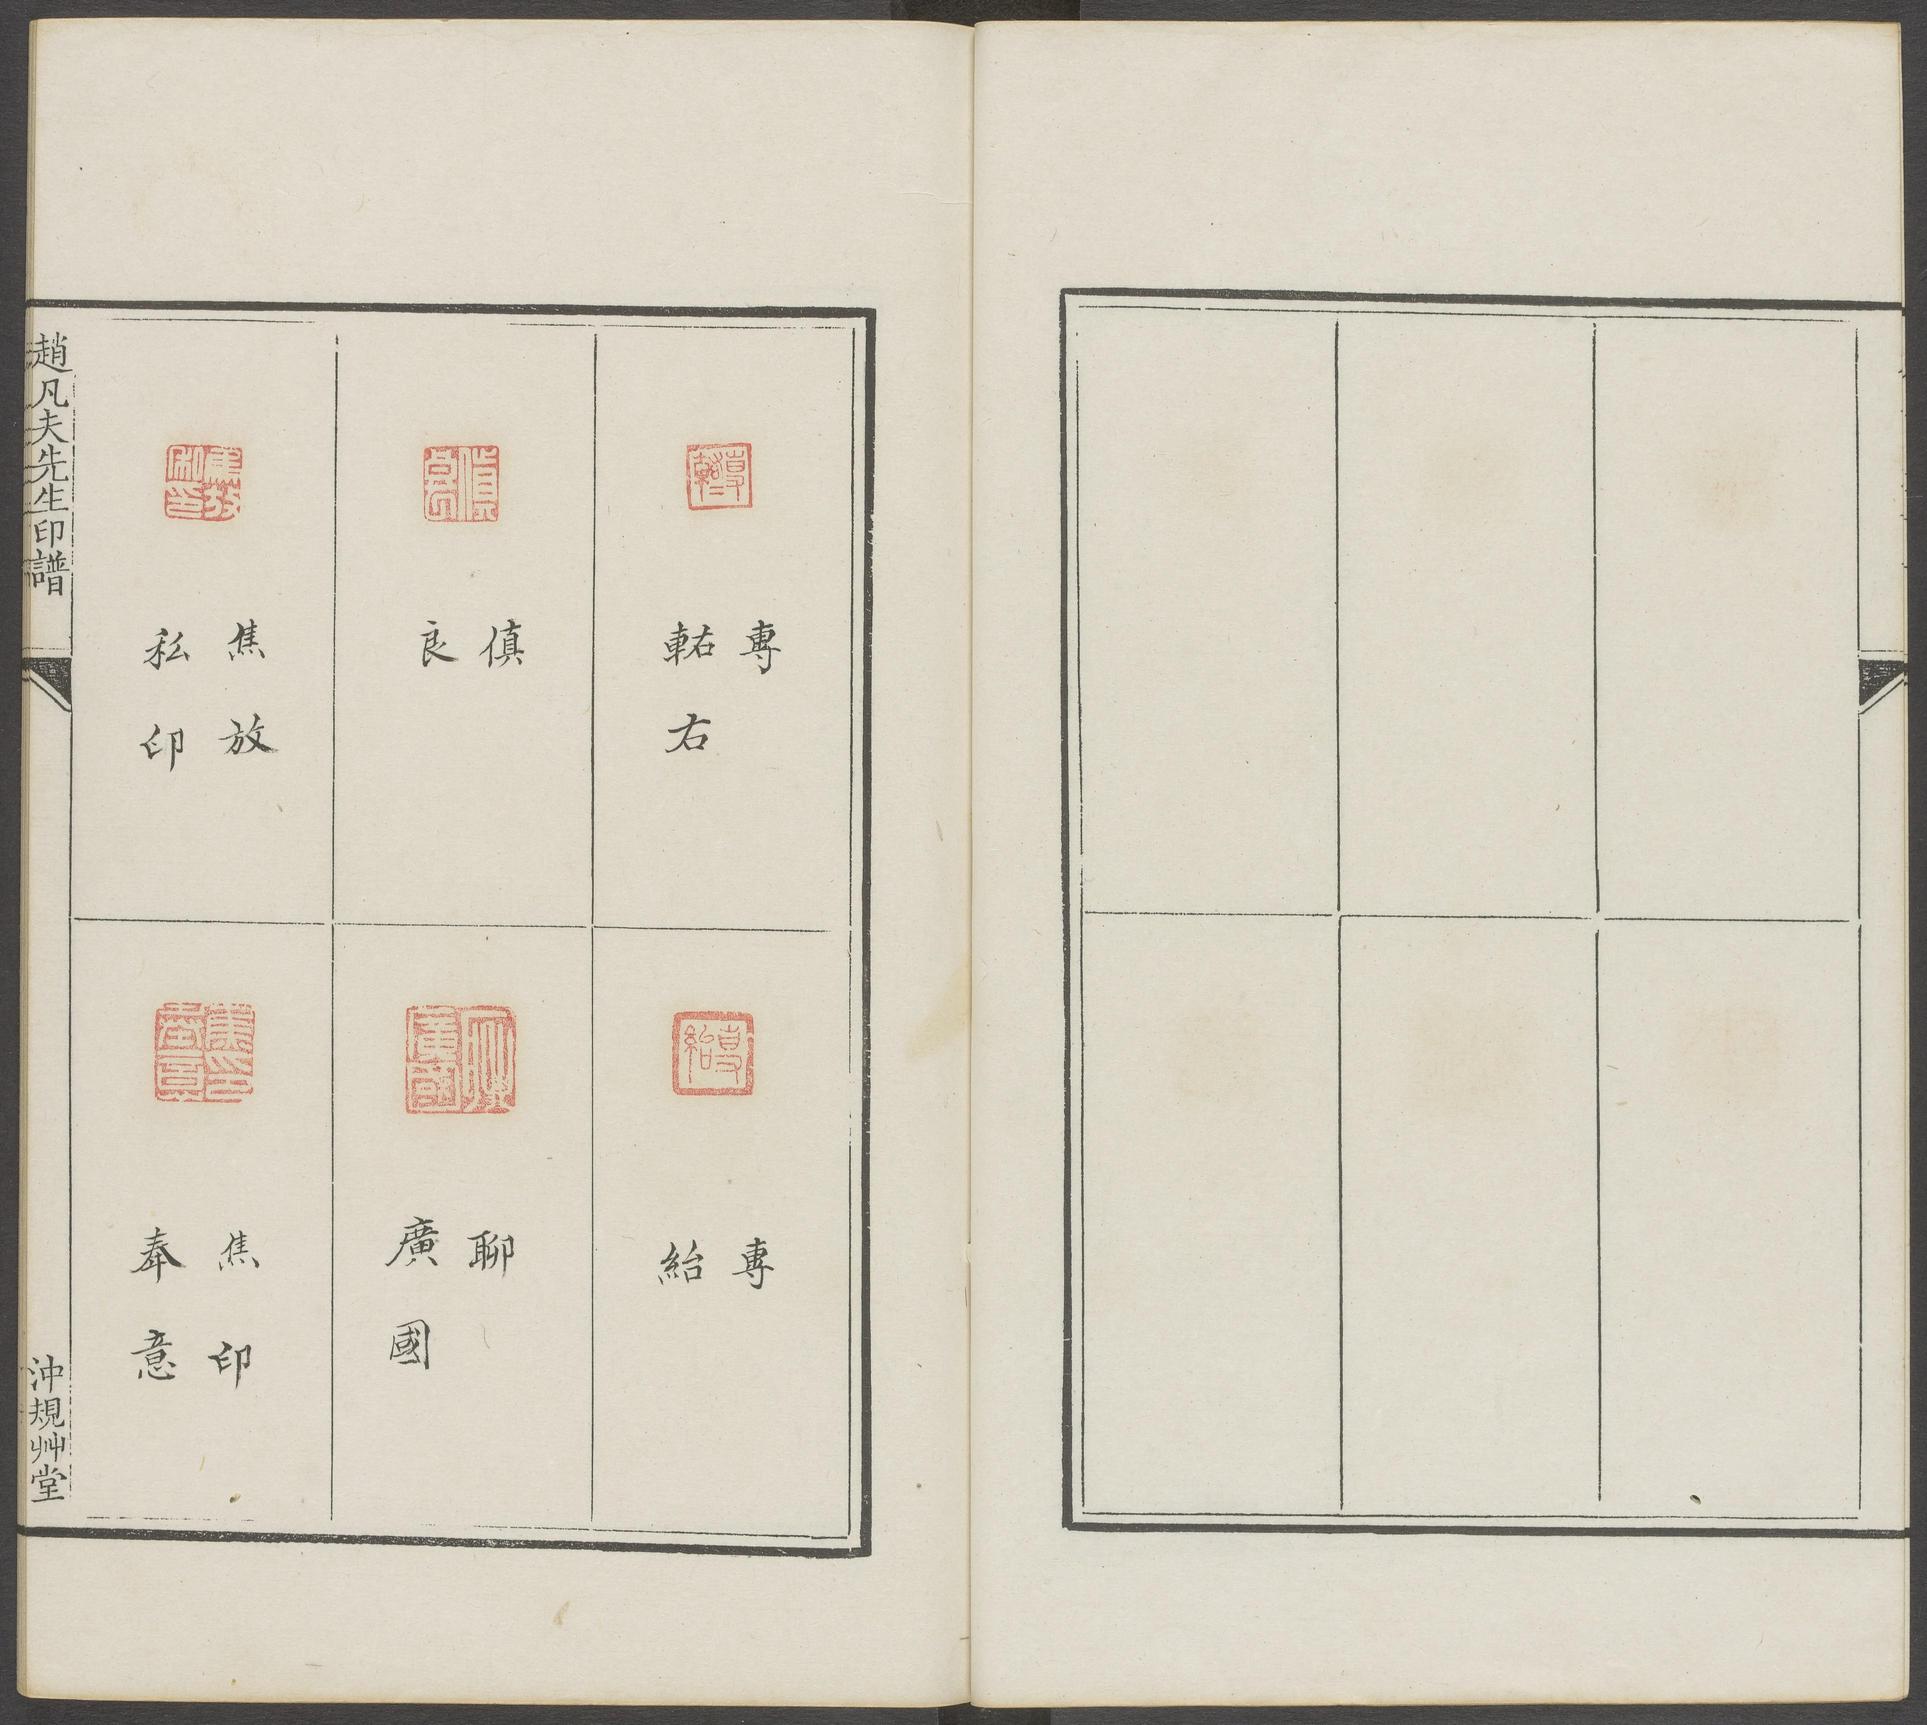 專
䡊右
專
紿
傎
良
聊
廣國
焦放
私印
焦印
奉意
趙凡夫先生印譜
沖規艸堂